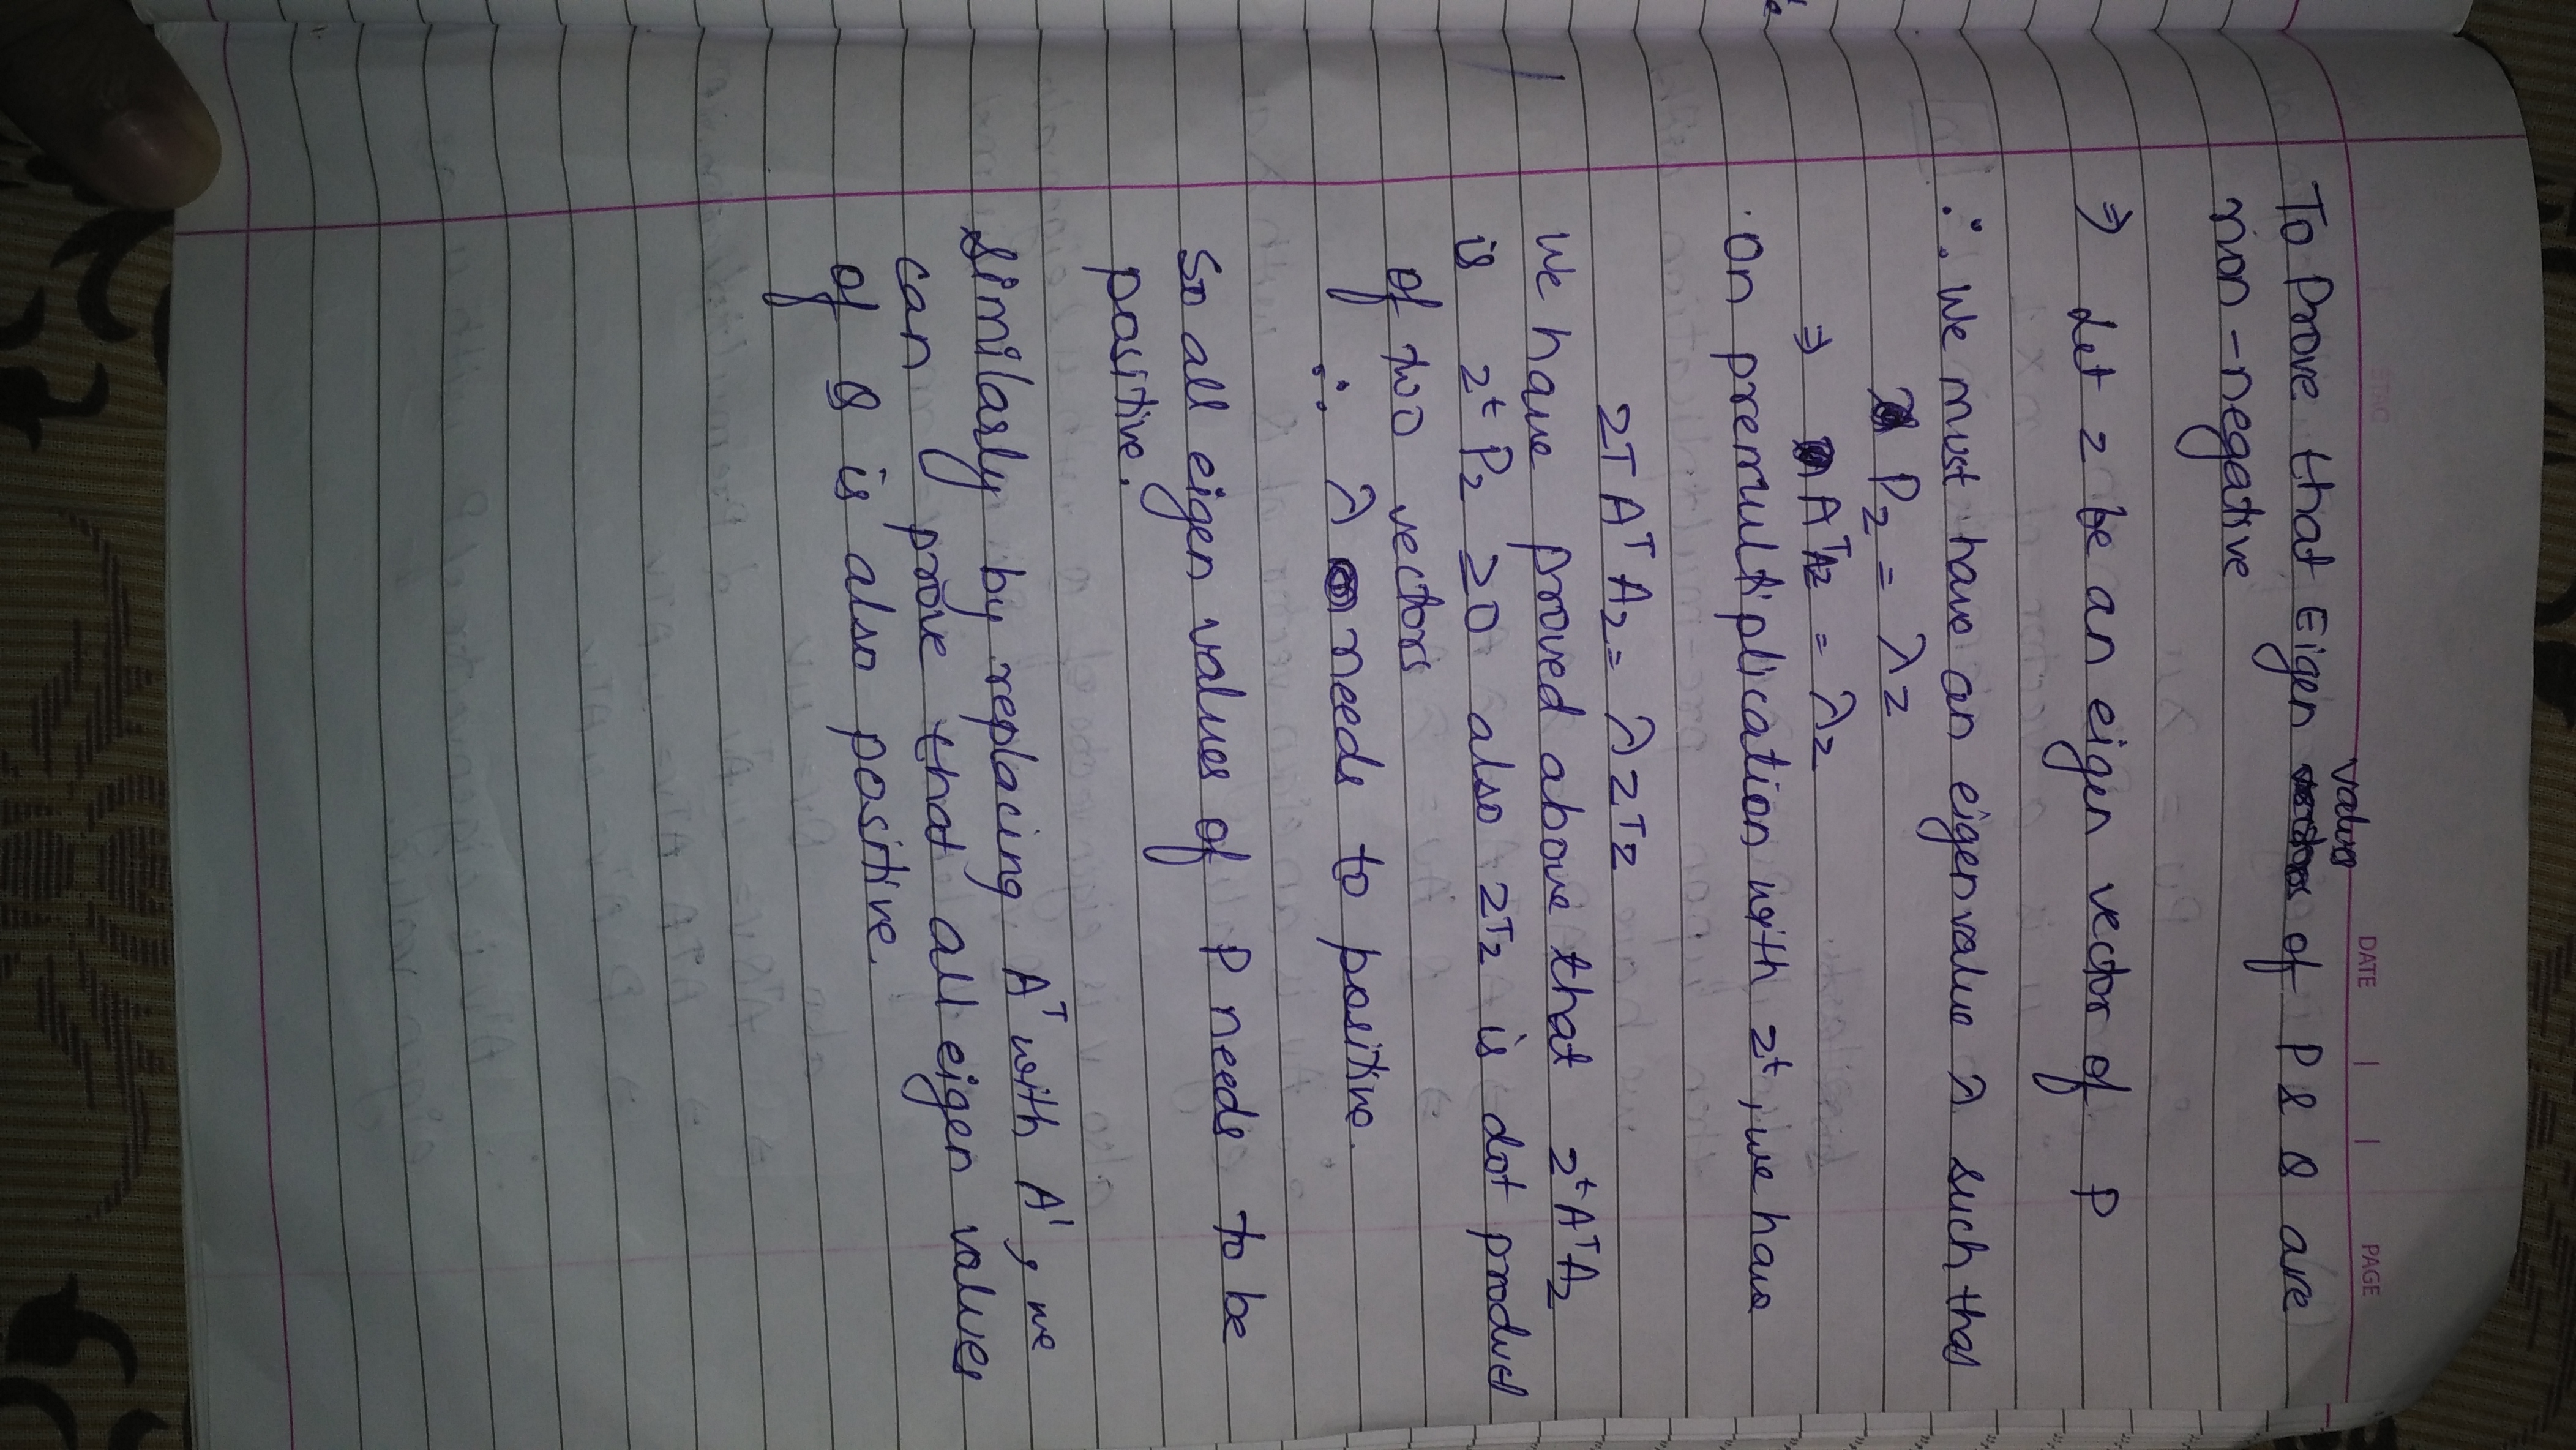 DATE
PAGE
To Prove that Eigen values of P & Q are
non-negative
⇒ Let z be an eigen vector of P
∴ we must have an eigenvalue λ such that
Pz = λz
⇒ AᵀAz = λz
On premultiplication with zᵗ, we have
zᵀAᵀAz = λzᵀz
We have proved above that zᵗAᵀAz
is zᵗPz ≥0 also zᵀz is dot product
of two vectors
∴ λ needs to positive.
So all eigen values of P needs to be
positive.
Similarly by replacing Aᵀ with A', we
can prove that all eigen values
of Q is also positive.